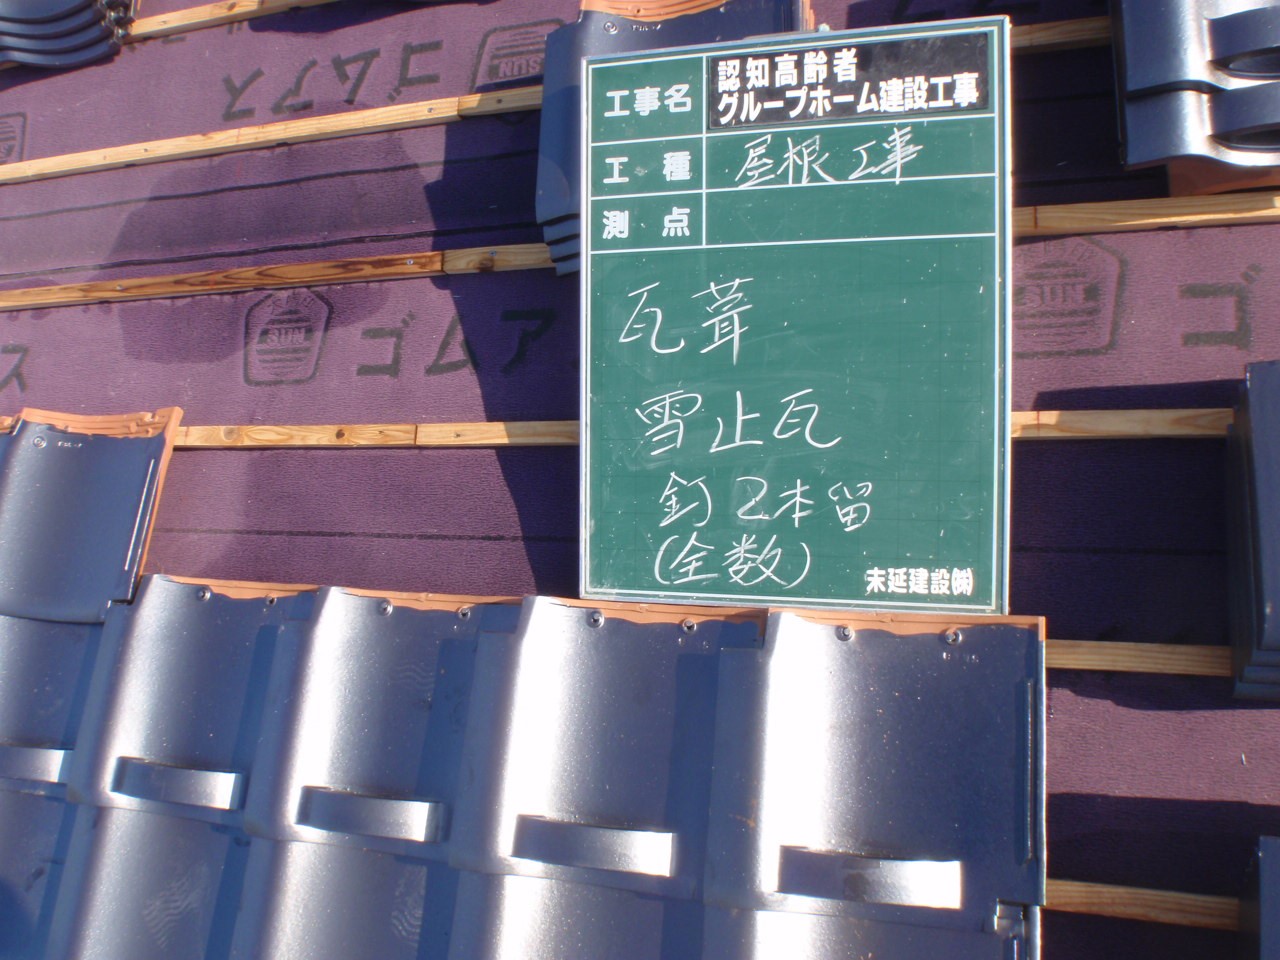 ゴムアス
SUN
工事名
認知高齢者
グループホーム建設工事
工種
屋根工事
測点
瓦葺
雪止瓦
釘2本留
(全数)
末延建設㈱
SUN
ゴムア
SUN
ゴ
ス